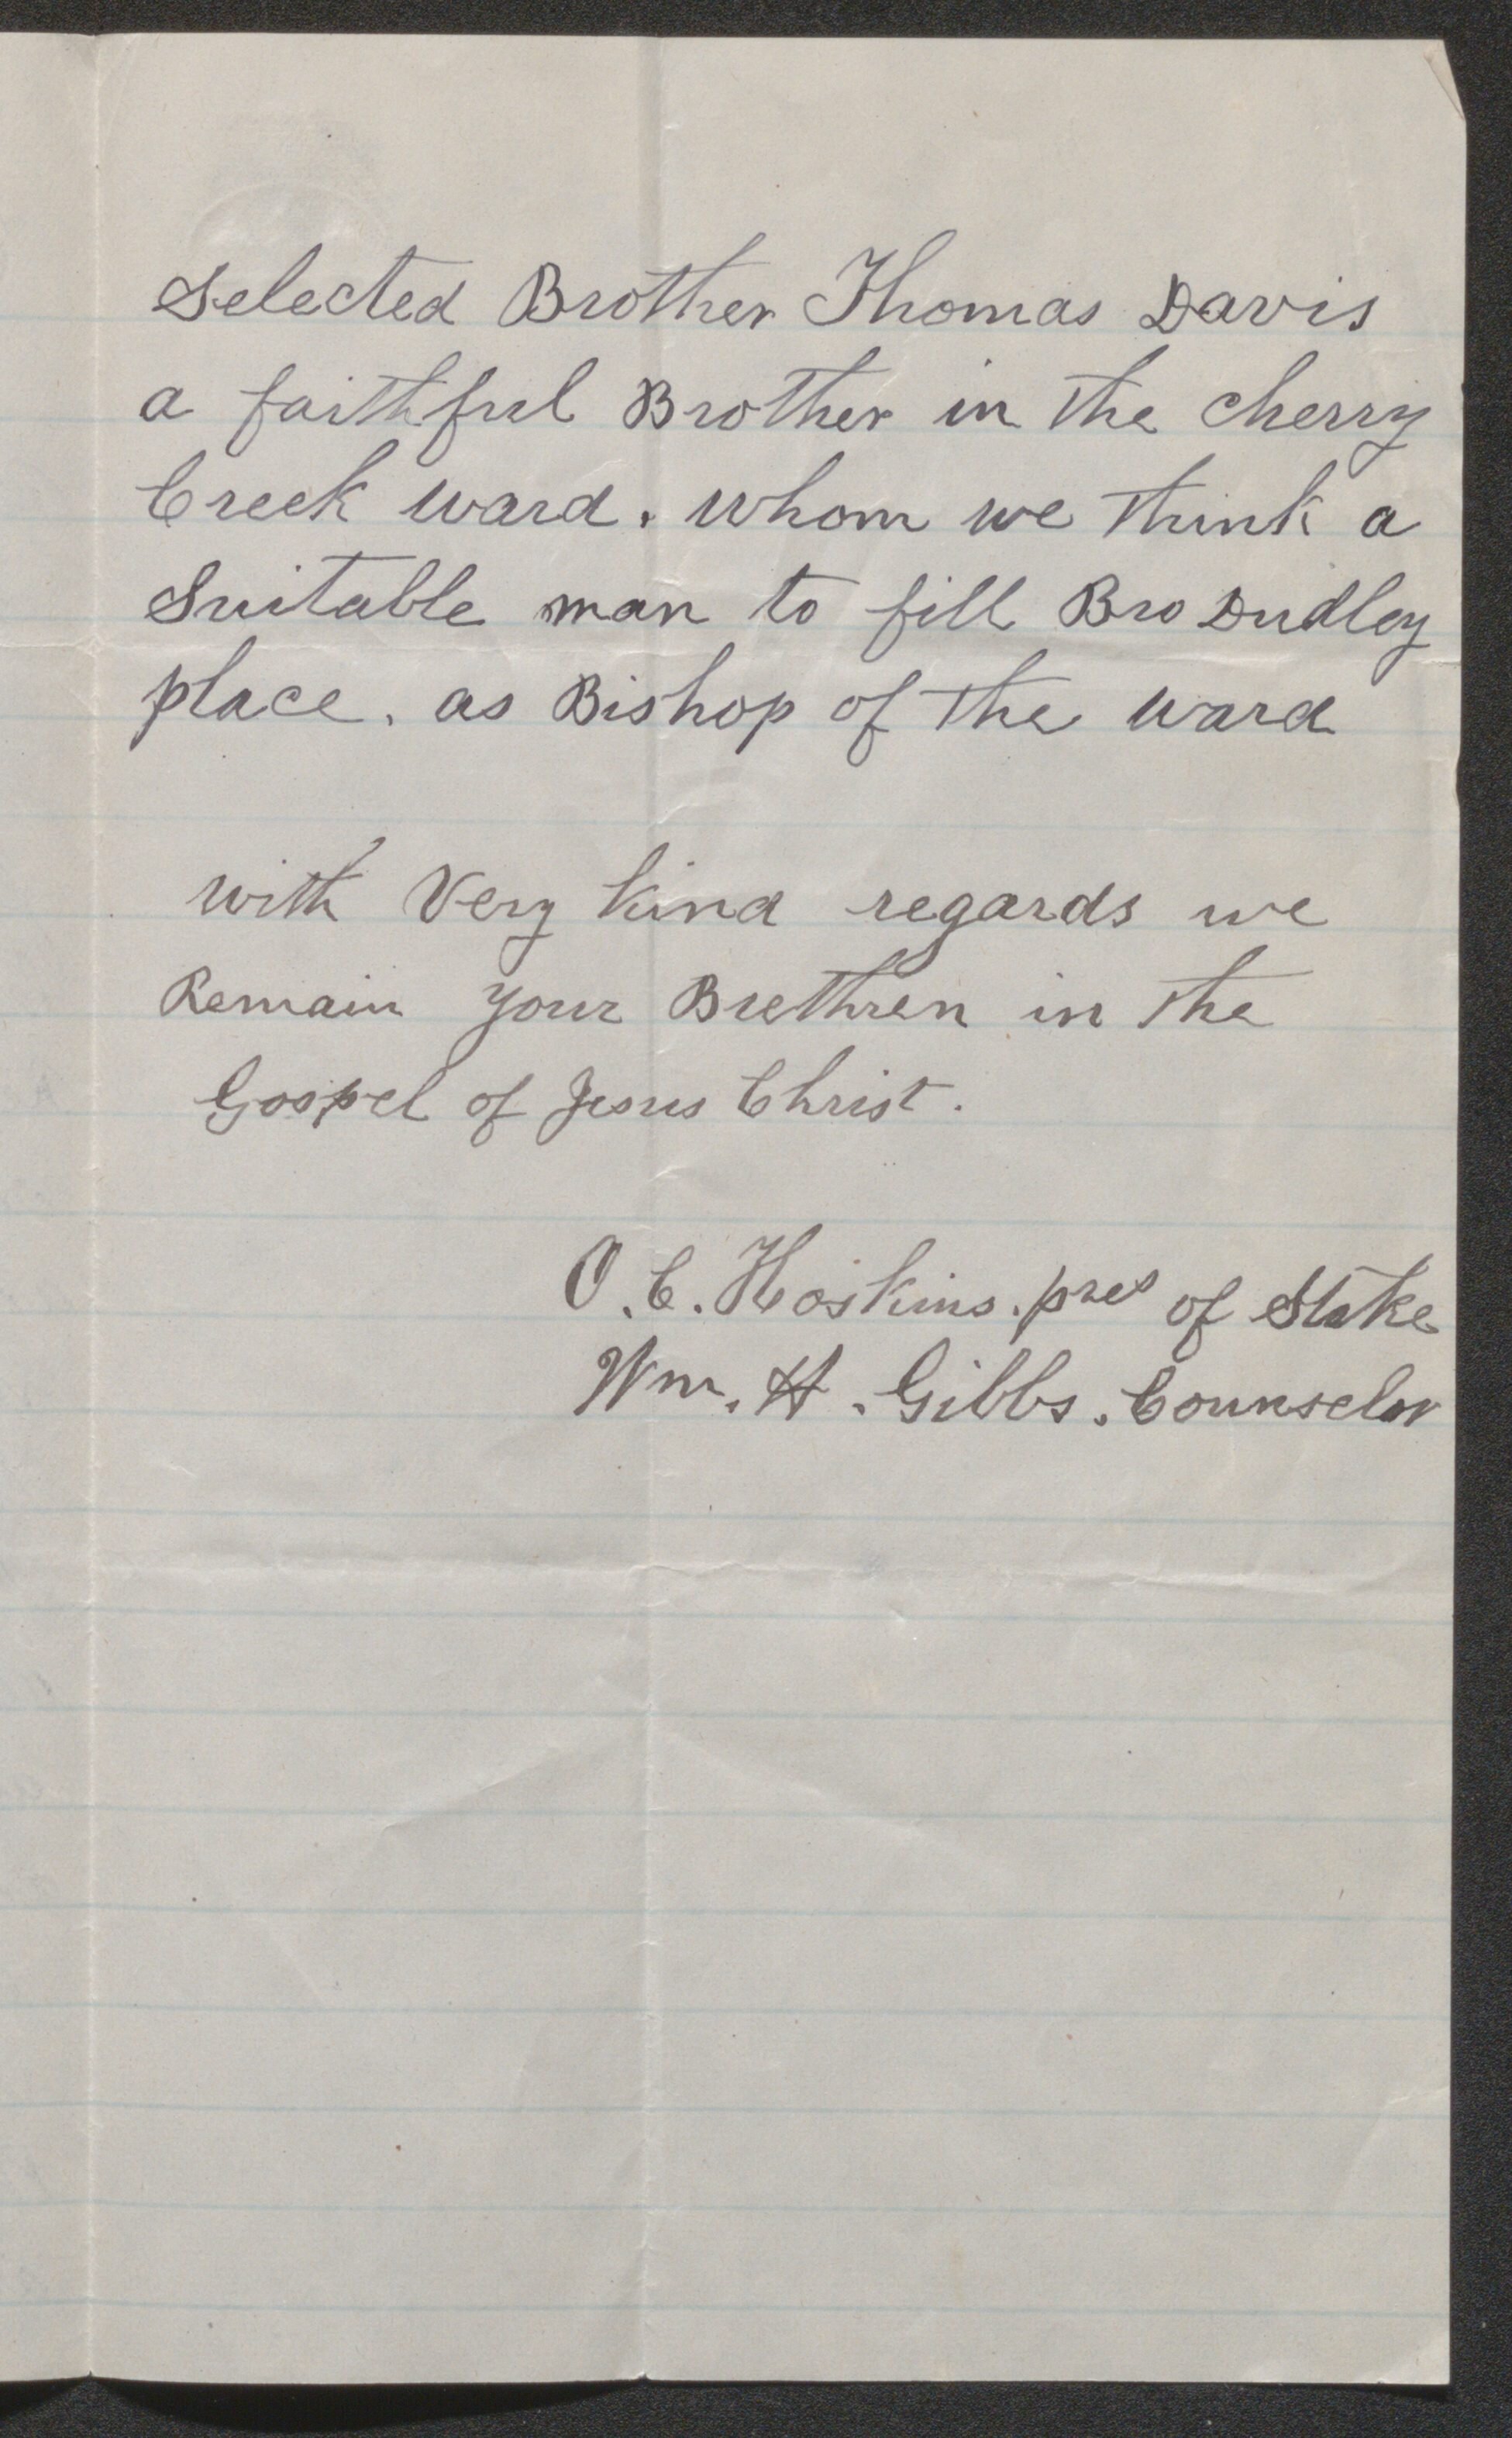 Selected Brother Thomas Davis
a faithful Brother in the Cherry
Creek ward. whom we think a
Suitable man to fill Bro Dudley
place. as Bishop of the ward
with Very kind regards we
Remain your Brethren in the
Gospel of Jesus Christ.
O. C. Hoskins. pres of Stake
Wm. H. Gibbs. Counselor